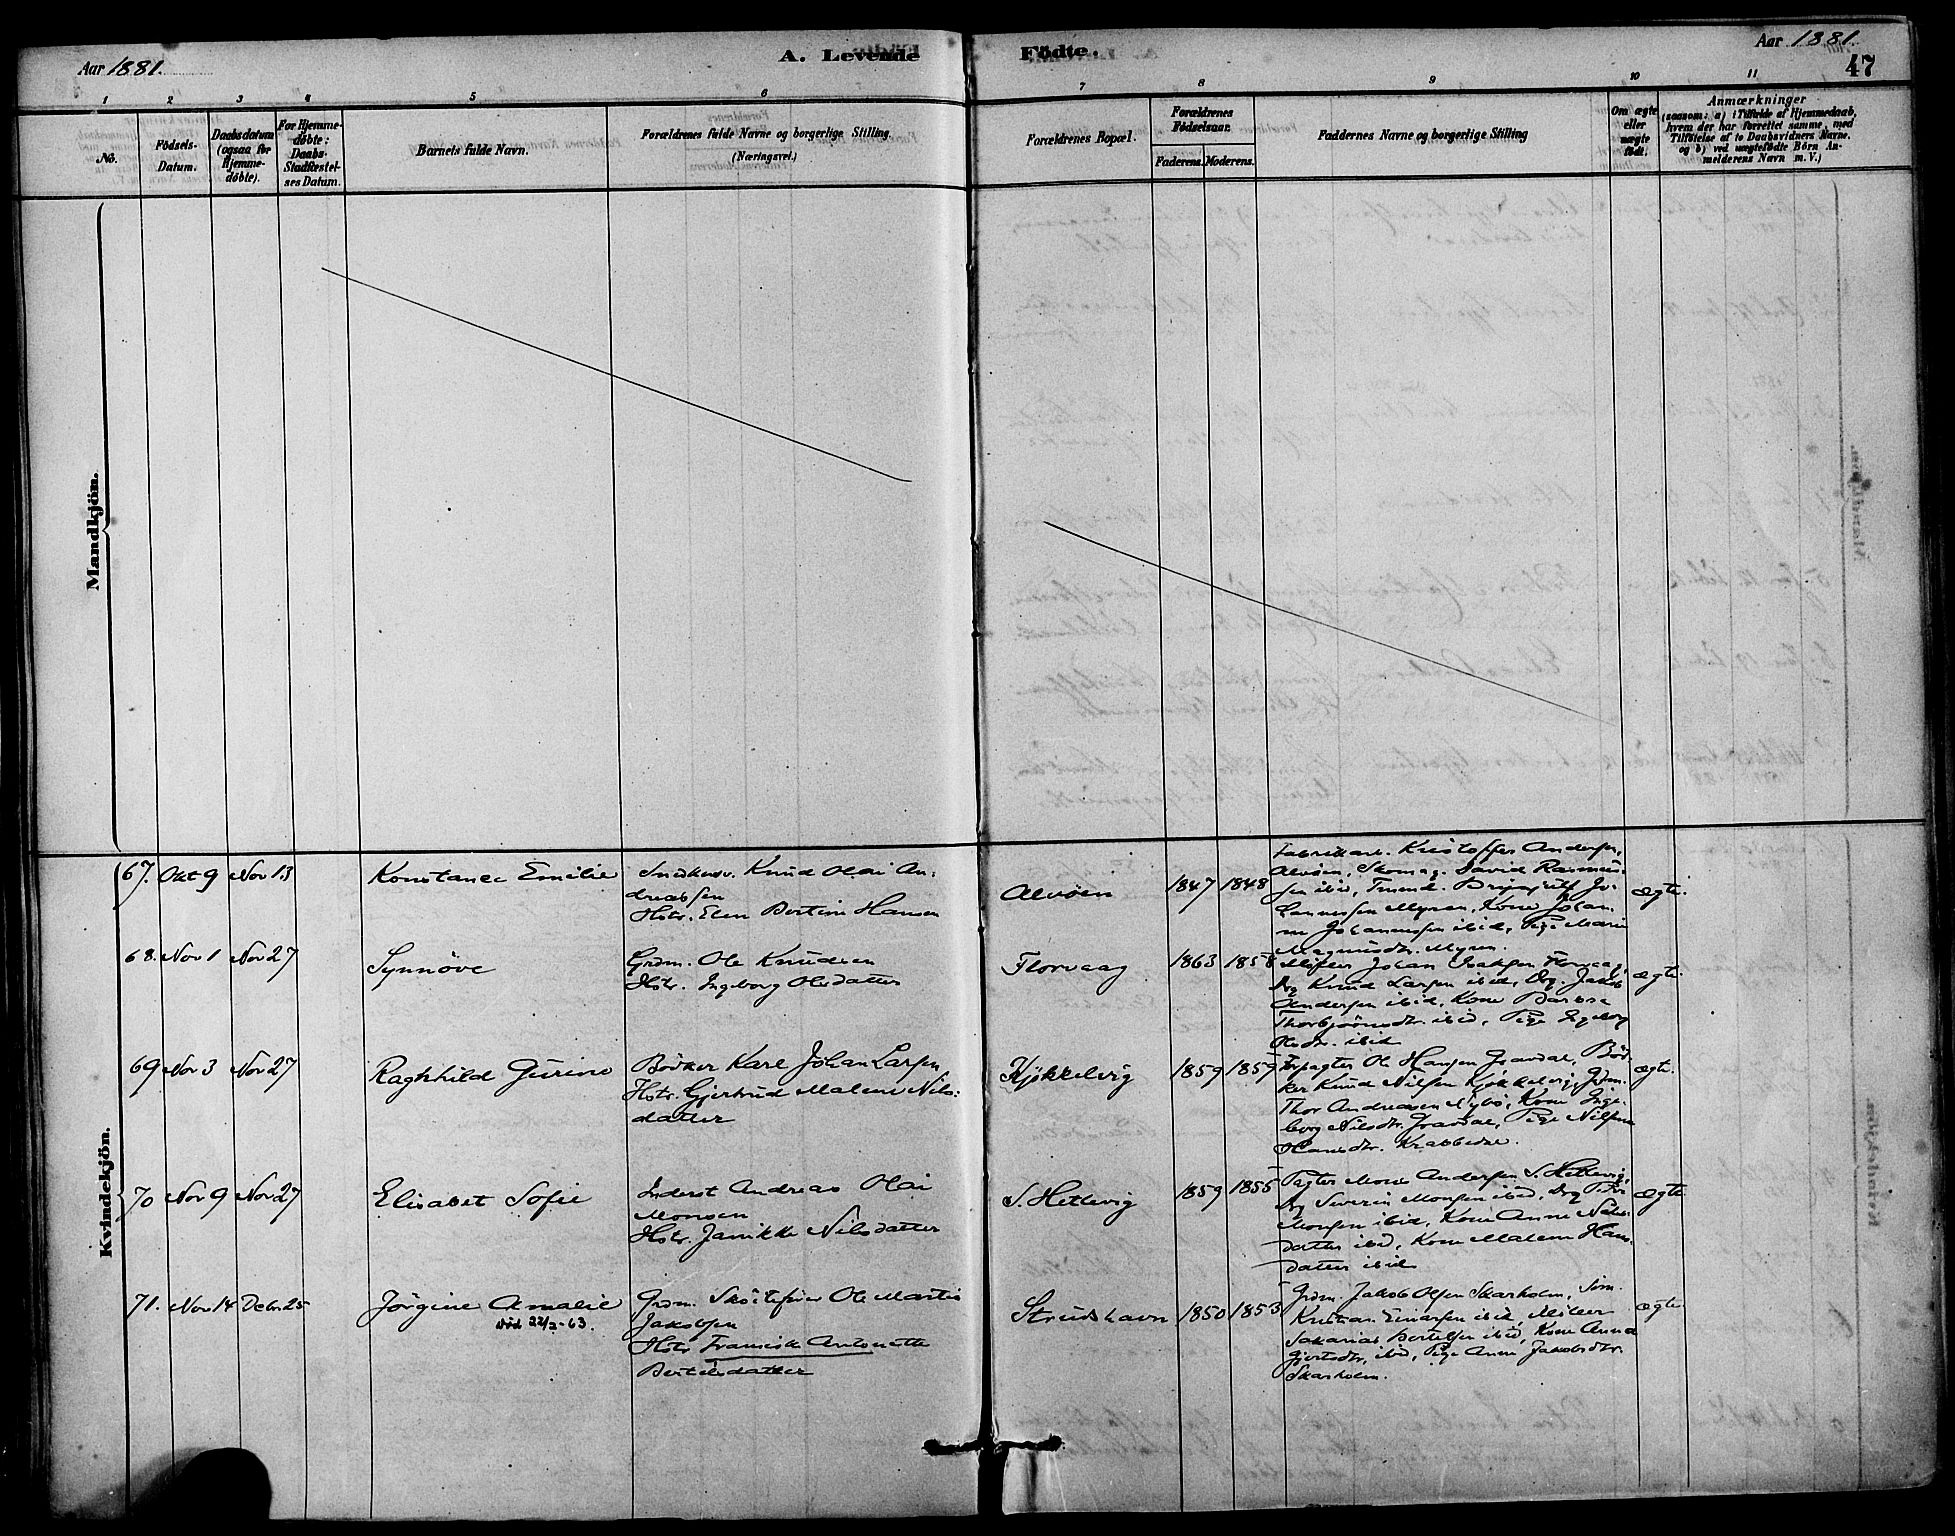 Aar 1881.
A. Levende
Födte.
Aar 1881.
47
1 2 3 4 5 6 7 8 9 10 11
No.
Födsels-
Datum.
Daabsdatum
(ogsaa for
Hjemme-
döbte).
For Hjemme-
döbte:
Daabs-
Stadfæstel-
ses Datum.
Barnets fulde Navn.
Forældrenes fulde Navne og borgerlige Stilling.
(Næringsvei.)
Forældrenes Bopæl.
Forældrenes
Födselsaar.
Faderens. Moderens.
Faddernes Navne og borgerlige Stilling
Om ægte
eller
uægte
født.
Anmærkninger
(saasom: a) i Tilfælde af Hjemmedaab,
hvem der har forrettet samme, med
Tilföielse af to Daabsvidners Navne.
og b) ved uægtefödte Börn An-
melderens Navn m. V.)
Mandkjön.
Kvindekjön.
67. Okt 9 Nov 13
Konstance Emilie
Snedkersv. Knud Olai An-
dreassen
Hstr. Elen Bertine Hansen
Alvøen
1847 1848
Fabrikarb. Kristoffer Andersen,
Alvøen, Skomag. David Rasmus-
sen ibid, Tmmd. Brynjulf Jo-
hannessen Myren, Kone Johan-
ne Johannessen ibid, Pige Marie
Magnusdtr. Myren.
ægte.
68. Nov 1 Nov 27
Synnöve
Grdm. Ole Knudsen
Hstr. Ingeborg Olesdatter
Florvaag
1863 1858
Johan Isaksen Florvaag,
Drg Knud Larsen ibid, Drg. Jakob
Andersen ibid, Kone Barbra
Thorbjörnsdtr. ibid, Pige Ingeborg
Olsdtr. ibid
ægte.
69 Nov 3 Nov 27
Raghhild Gurine
Bödker Karl Johan Larsen
Hstr. Gjertrud Malene Nils-
datter
Kjøkkelvig
1859 1859
Forpagter Ole Hansen Gravdal, Bød-
ker Knud Nilsen Kjøkkelvig, Grdm.
Thor Andreassen Nybø, Kone Inge-
borg Nilsdtr. Gravdal, Pige Nilsine
Hansdtr. Krabbedal.
ægte.
70 Nov 9 Nov 27
Elisabet Sofie
Inderst Andreas Olai
Monsen
Hstr. Janikke Nilsdatter
S. Hettevig
1859 1855
Pagter Mons Andersen S. Hettevig,
Drg Severin Monsen ibid, Drg Peder
Monsen ibid, Kone Anne Nils-
datter ibid, Kone Malene Hans-
datter ibid
ægte
71. Nov 14 Debr. 25
Jørgine Amalie
død 22/2-63.
Grdm. Skøitefører Ole Martin
Jakobsen
Hstr Franciska Antonette
Bertelsdatter
Strudshavn
1850 1853
Grdm. Jakob Olsen Skarholm, Tøm.
Kristian Einarsen ibid, Møller
Sakarias Bertelsen ibid, Kone Anna
Gjertsdtr, ibid, Pige Anne Jakobsdtr.
Skarholm.
ægte.